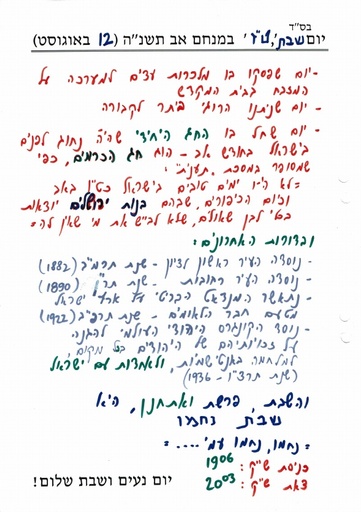 בס"ד
יום שבת, ט"ו במנחם אב תשנ"ה (12 באוגוסט)
- יום שפסקו בו מלכרות עצים למערכה על
המזבח בבית המקדש
- יום שניתנו הרוגי ביתר לקבורה
- יום שחל בו החג היחידי שהיה נהוג לפנים
בישראל בחודש אב - הוא חג הכרמים, כפי
שמסופר במסכת תענית:
"לא היו ימים טובים לישראל כט"ו באב
וכיום הכיפורים, שבהם בנות ירושלים יוצאות
בכלי לבן שאולים, שלא לבייש את מי שאין לה"
ובדורות האחרונים:
- נוסדה העיר ראשון לציון - שנת תרמ"ב (1882)
- נוסדה העיר רחובות - שנת תר"ן (1890)
- נתאשר המנדאט הבריטי על ארץ ישראל
מטעם חבר הלאומים - שנת תרפ"ב (1922)
- נוסד הקונגרס היהודי העולמי להגנה
על זכויותיהם של היהודים בכל מקום,
למלחמה באנטישמיות, ולאחדות עם ישראל
(שנת תרצ"ו - 1936)
והשבת, פרשת ואתחנן, היא
שבת נחמו
"נחמו, נחמו עמי"....
כניסת ש"ק: 1906
צאת ש"ק: 2003
יום נעים ושבת שלום!